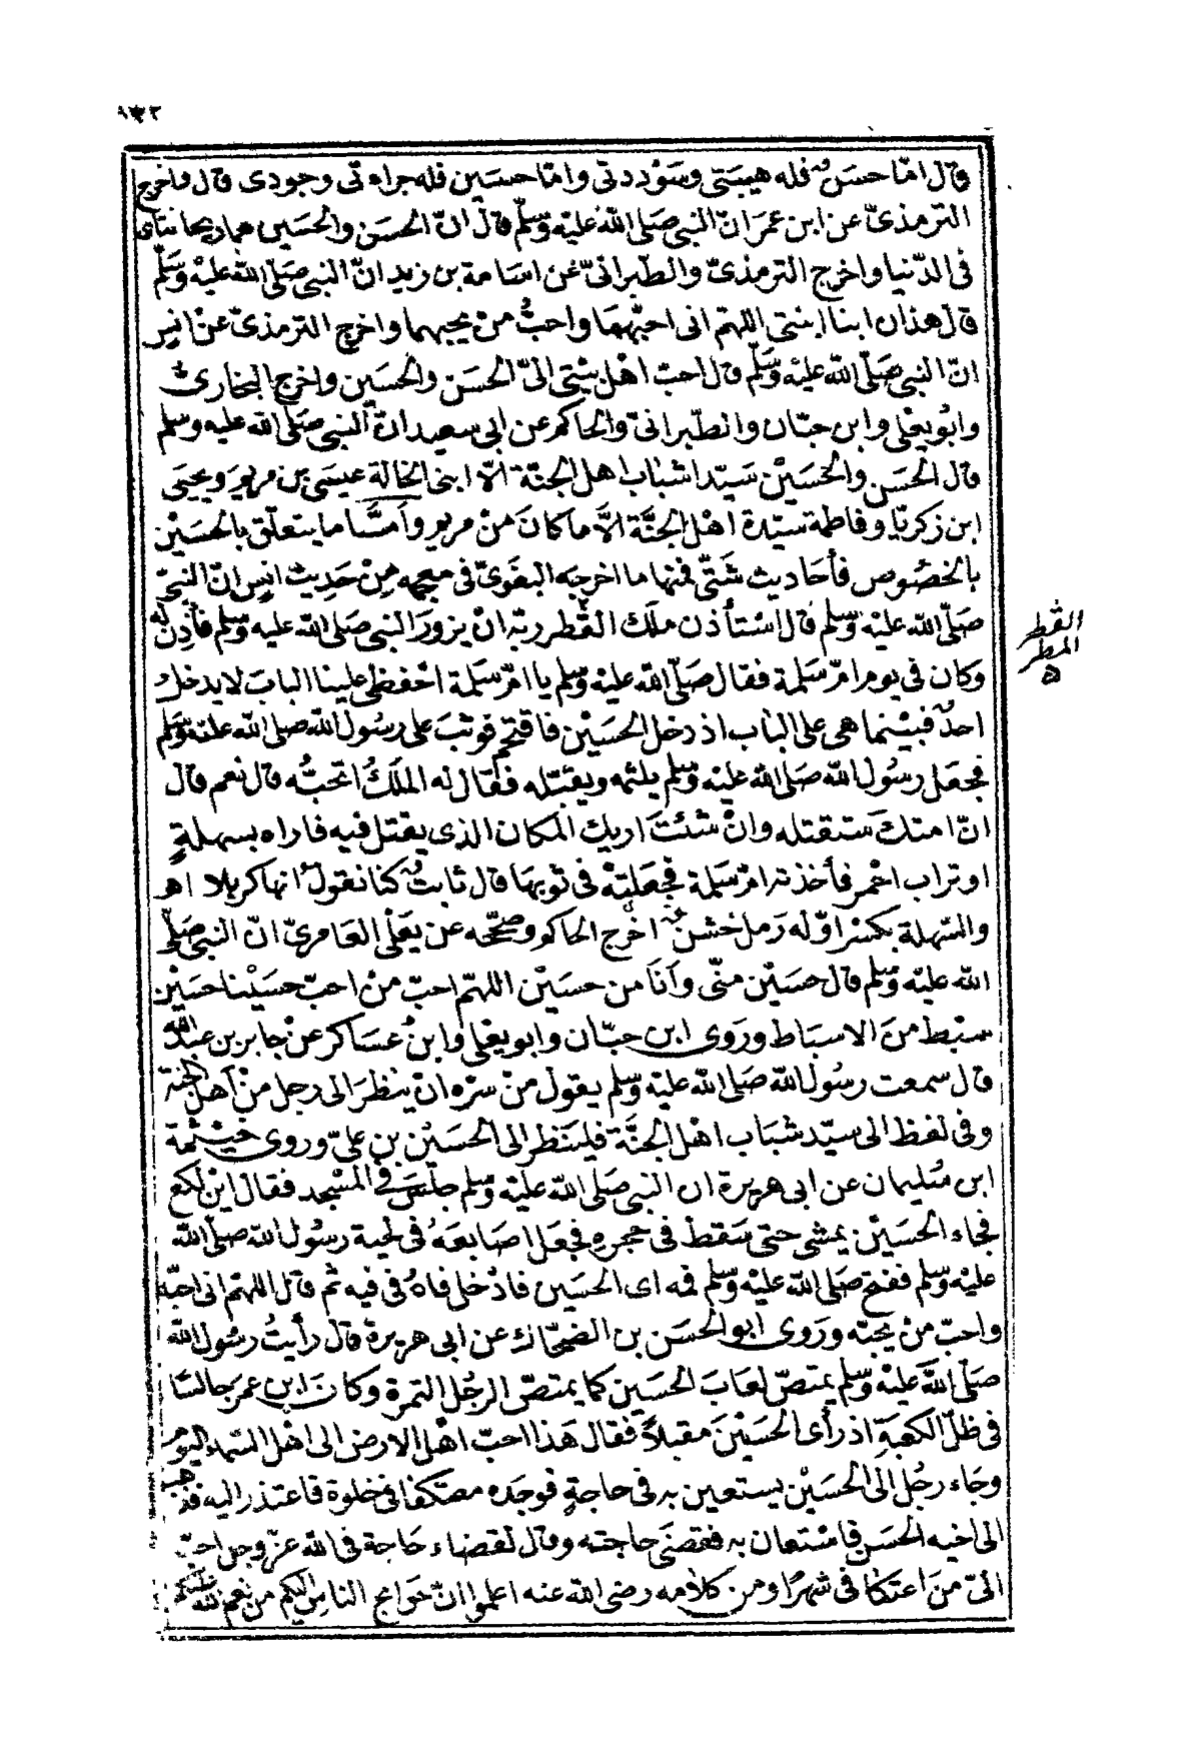 ١٣٢
قال امّا حسن فله هيبتى وسؤددى وامّا حسين فله جراءتى وجودى قال واخرج
الترمذىّ عن ابن عمر انّ النبى صَلّى الله عليه وسَلّم قال انّ الحسَن والحسَين هما ريحانتاى
فى الدّنيا واخرج الترمذىّ والطبرانىّ عن اسامة بن زيد انّ النبى صَلّى الله عليه وسَلّم
قال هذان ابناى وابنا ابنتى اللهمّ انى احبّهما واحبّ من يحبهما واخرج الترمذىّ عن انس
انّ النبى صَلّى الله عليه وسَلّم قال احبّ اهل بيتى الىّ الحسَن والحسَين واخرج البخارىّ
وابو يعلى وابن حبّان والطبرانىّ والحاكم عن ابى سعيد انّ النبى صَلّى الله عليه وسلم
قال الحسَن والحسَين سَيّدا شباب اهل الجنّة الاّ ابنى الخالة عيسَى بن مريم ويحيى
ابن زكريّا وفاطمة سيّدة اهل الجنَّة الاَّ ما كانَ من مريم وامَّا ما يتعلّق بالحسَين
بالخصُوص فأحاديث شَتّى فمنها ما اخرجه البغوىّ فى معجمه مِن حَدِيث انس انّ النبىّ
صَلّى الله عليه وَسلم قال اسْتأذن ملَك القطر ربّه انْ يزورَ النبى صَلّى الله عليه وسلم فأذِن له
وكان فى يوم امّ سَلمة فقال صَلّى الله عليه وسلم يا امّ سَلمة احْفظى علينا البابَ لا يدخل
احدٌ فبيْنما هى على الباب اذ دخل الحسَيْن فاقتحم فوثبَ على رسُول الله صلى الله عليه وسَلم
فجعَل رسُول الله صَلى الله عليه وَسلم يلثمه ويقبّله فقال له الملَكُ اتحبُّه قال نعم قال
انّ امتكَ ستقتله وانْ شئتَ اريك المكان الذى يقتل فيه فاراه بسهلةٍ
او تراب احْمر فأخذته امّ سَلمة فجعَلته فى ثوبها قال ثابتٌ كنا نقول انها كربلا اهـ
والسّهلة بكسْر اوّله رَمل خشن اخرج الحاكم وصحّحه عن يَعْلى العَامرىّ انّ النبى صَلّى
الله عليه وَسلم قال حسَيْن منّى وَانَا من حسَيْن اللهمّ احبّ منْ احبّ حسَيْنا حسَيْن
سبْط منَ الاسبَاط ورَوى ابن حبّان وابو يعْلى وابنُ عسَاكر عنْ جابر بن عبد الله
قال سمعت رسُول الله صَلى الله عليه وسلم يقول منْ سرّه انْ ينظرَ الى رجل منْ اهل الجنة
وفى لفظ الى سيّد شبَاب اهْل الجنَّة فلينظر الى الحسَيْن بن علىّ وروى خيثمة
ابن سُليمان عن ابى هريرة ان النبى صَلى الله عليه وَسلم جلسَ فى المسْجد فقال ايْن لكع
فجاء الحسَيْن يمشى حتى سَقط فى حجره فجعَل اصَابعَهُ فى لحية رسُول الله صَلى الله
عليْه وَسلم ففتح صَلى الله عليْه وَسلم فمه اى الحسَين فادْخل فاهُ فى فيه ثم قال اللهمّ انى احبّه
واحبّ منْ يحبّه ورَوى ابو الحسَن بن الضحّاك عن ابى هريرة قال رأيتُ رسُول الله
صَلى الله عليْه وَسلم يمتصّ لعَابَ الحسَين كما يمتصّ الرجُل التمرة وكانَ ابن عمر جالسًا
فى ظلّ الكعبَةِ اذ رأى الحسَيْنَ مقبلاً فقال هَذا احبّ اهْل الارض الى اهْل السّماء اليوم
وجَاء رجُل الى الحسَيْن يستعين به فى حاجةٍ فوجَده معتكفا فى خلوة فاعتذر اليه فذهب
الى اخيه الحسَن فاسْتعان به فقضَى حاجته وقال لقضاء حَاجة فى الله عزّ وجل احبّ
الىّ منَ اعتكافى شهرًا ومن كلامه رضى الله عنه اعلموا انّ حَوائج الناسِ اليكم من نعم الله عليكم
القطر
المطر